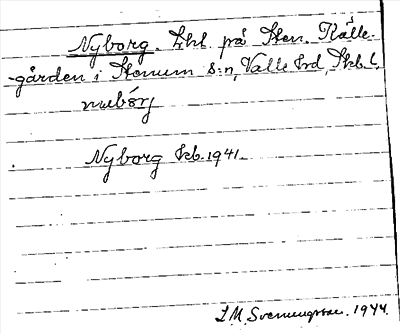 Nyborg. Lht. på Hem. Källe-
gården i Stenum s:n, Valle hd, Skb. l.
nubórj
Nyborg Kb. 1941.
L M. Svenungsson. 1944.